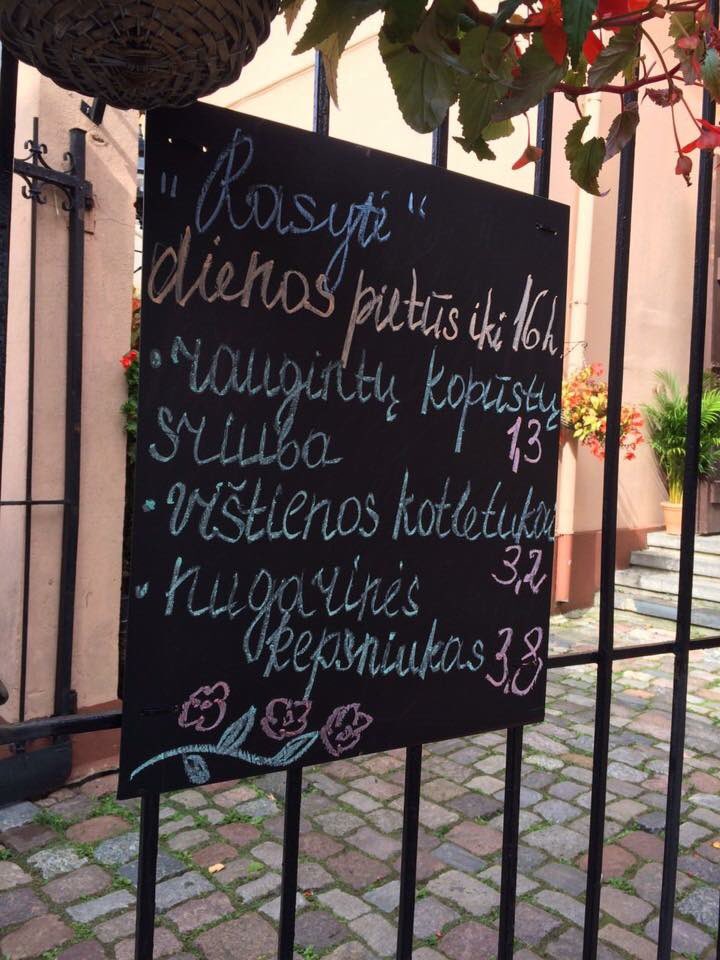 "Rasytė"
dienos pietūs iki 16h.
• raugintų kopūstų
sriuba 1,3
• vištienos kotletukai
3,2
• nugarinės
kepsniukas 3,8